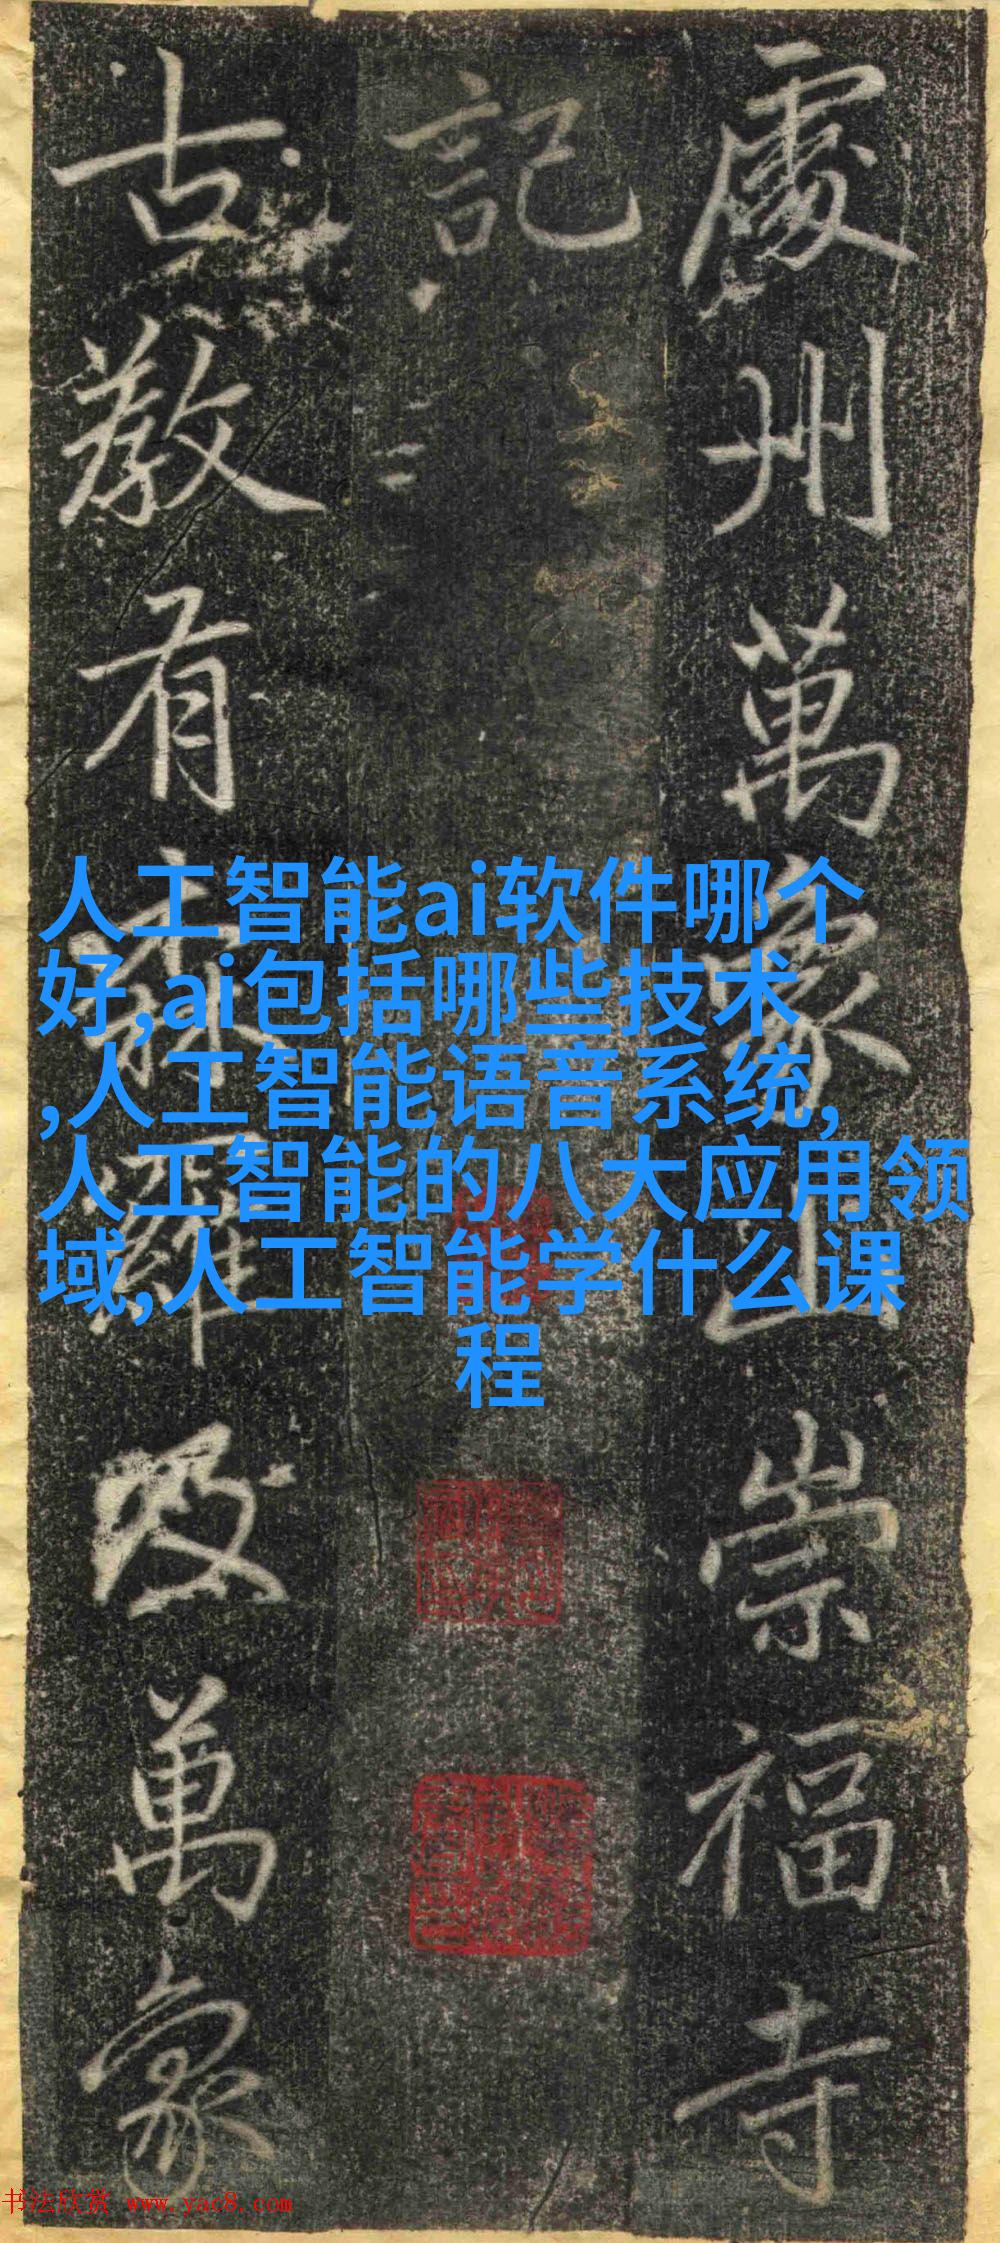 處州萬象山崇福寺
記
古教有森羅及萬象
人工智能ai软件哪个
好,ai包括哪些技术
,人工智能语音系统,
人工智能的八大应用领
域,人工智能学什么课
程
书法欣赏 www.yac8.com